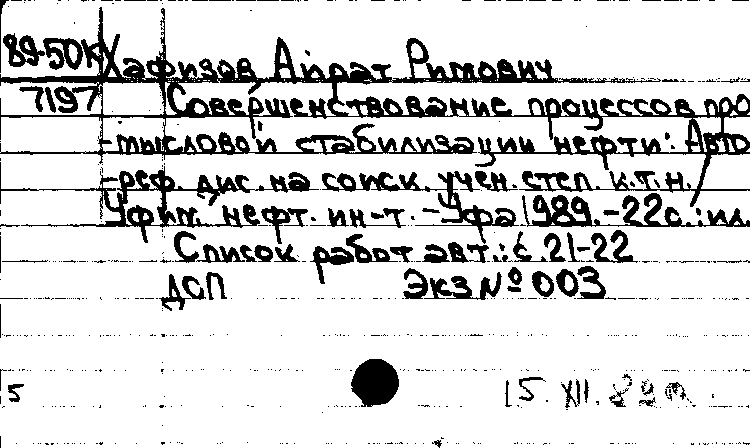 89-50К Хафизов Айрат Римович
7197 Совершенствование процессов про
-мысловой стабилизации нефти: Авто
-реф. дис. на соиск. учен. степ. к.т.н./
Уфим. нефт. ин-т. -Уфа 1989.-22с.:ил.
Список работ авт.: с.21-22
ДСП Экз № 003
5 15. XII. 89